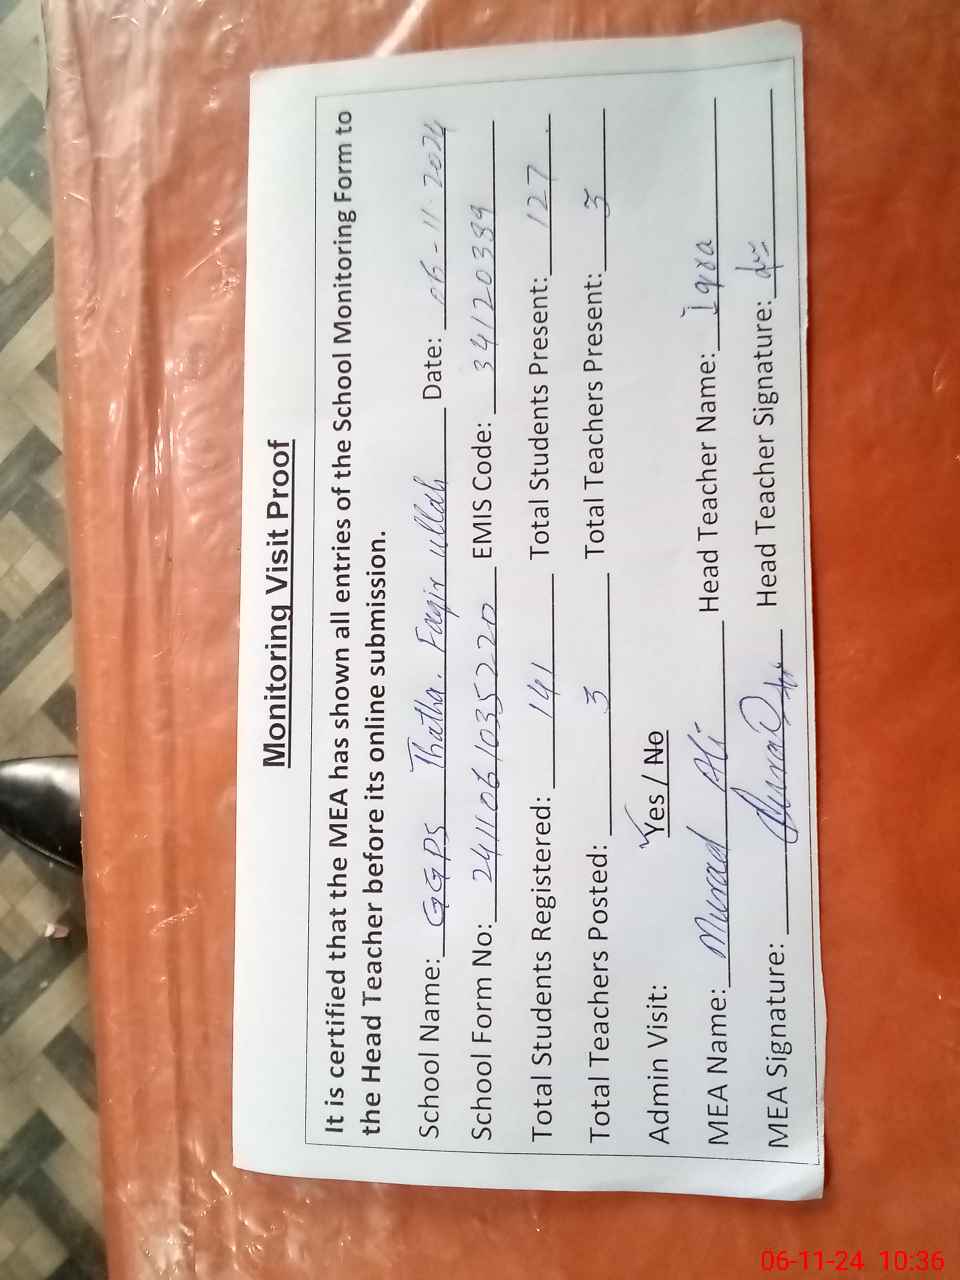 Monitoring Visit Proof
It is certified that the MEA has shown all entries of the School Monitoring Form to
the Head Teacher before its online submission.
School Name: GGPS Thatha. Faqir ullah Date: 06-11-2024
School Form No: 2411061035220 EMIS Code: 34120399
Total Students Registered: 141 Total Students Present: 127
Total Teachers Posted: 3 Total Teachers Present: 3
Admin Visit: Yes / No
MEA Name: Murad Ali Head Teacher Name: Iqra
MEA Signature: Head Teacher Signature:
06-11-24 10:36